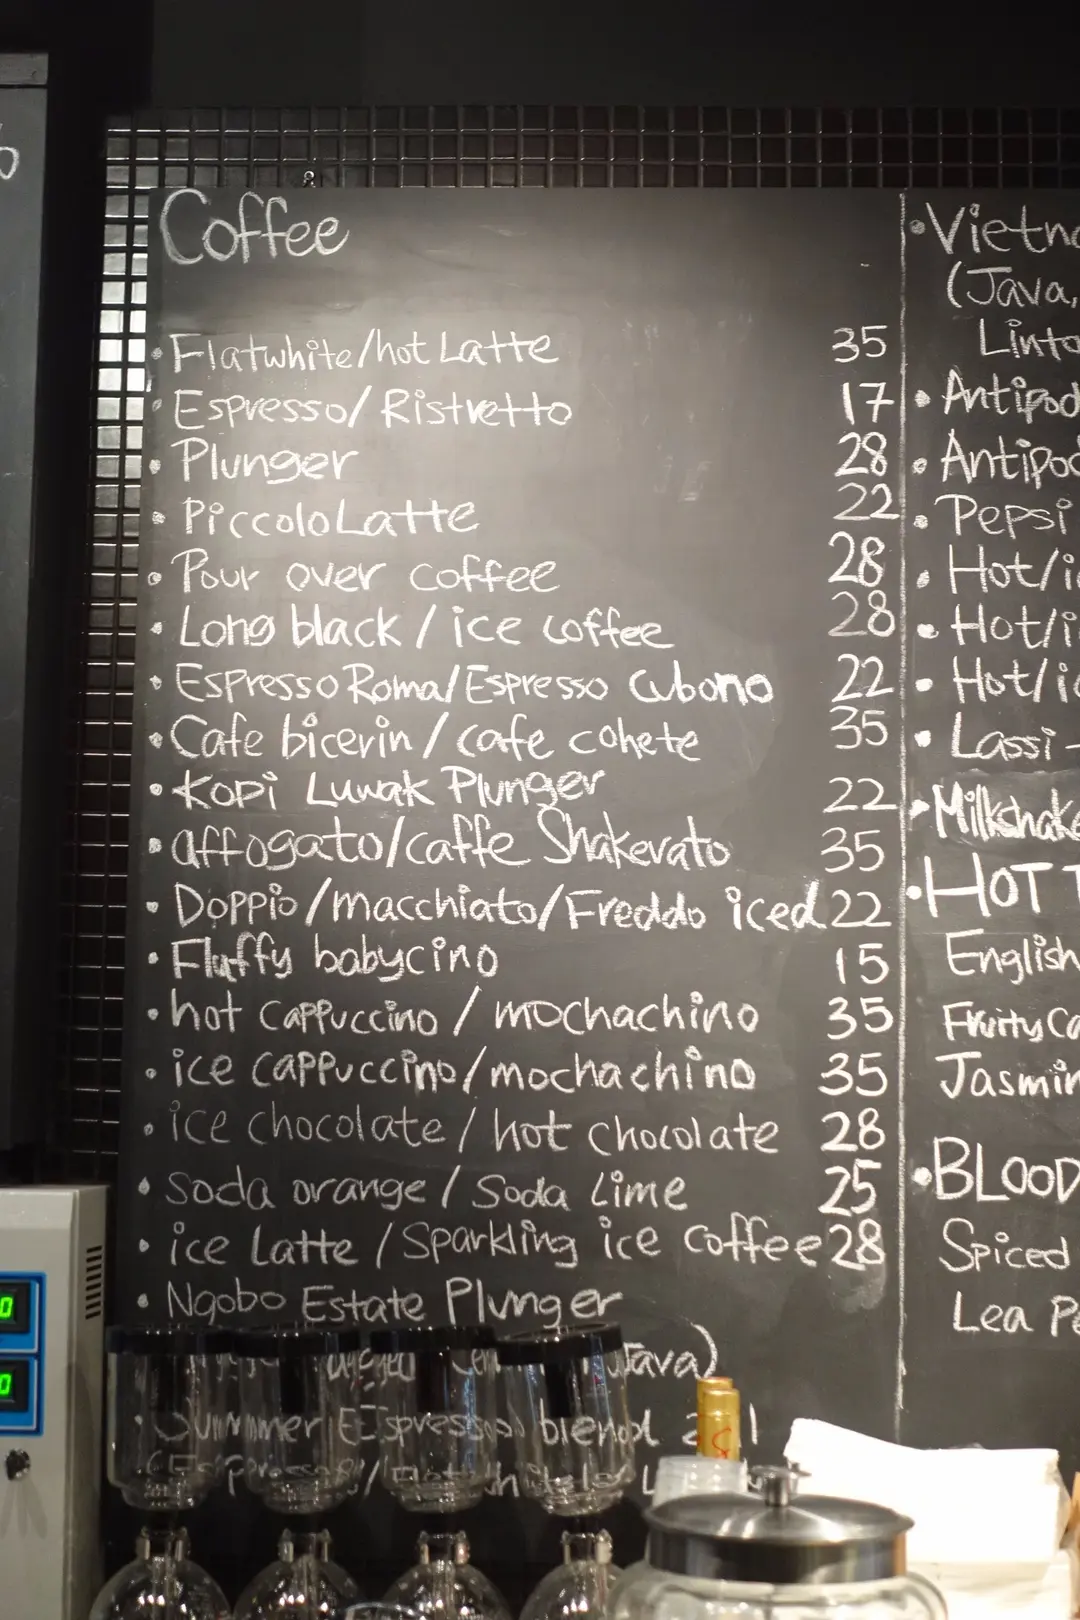 Coffee
• Flatwhite/hot Latte 35
• Espresso/Ristretto 17
• Plunger 28
• Piccolo Latte 22
• Pour over coffee 28
• Long black / ice coffee 28
• Espresso Roma/Espresso Cubono 22
• Cafe bicerin / cafe cohete 35
• Kopi Luwak Plunger 22
• affogato/caffe Shakerato 35
• Doppio/macchiato/Freddo iced 22
• Fluffy babycino 15
• hot cappuccino / mochachino 35
• ice cappuccino/mochachino 35
• ice chocolate / hot chocolate 28
• Soda orange / Soda Lime 25
• ice Latte / Sparkling ice coffee 28
• Ngobo Estate Plunger
Java)
• Summer Espresso blend
(Java,
• Pepsi
• Hot/
• Hot/
• Hot/
• Lassi -
• Milkshake
• HOT
English
Fruity
Jasmin
• BLOOD
Spiced
Lea